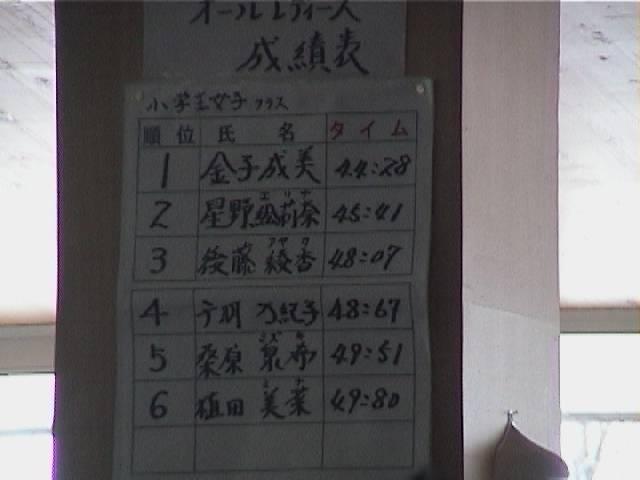 オールレディース
成績表
小学生女子クラス
順位 氏名 タイム
1 金子成美 44:28
エリナ
2 星野絵莉奈 45:41
アヤカ
3 後藤綾香 48:07
4 千明乃紀子 48:67
5 桑原 49:51
ミナ
6 植田美菜 49:80